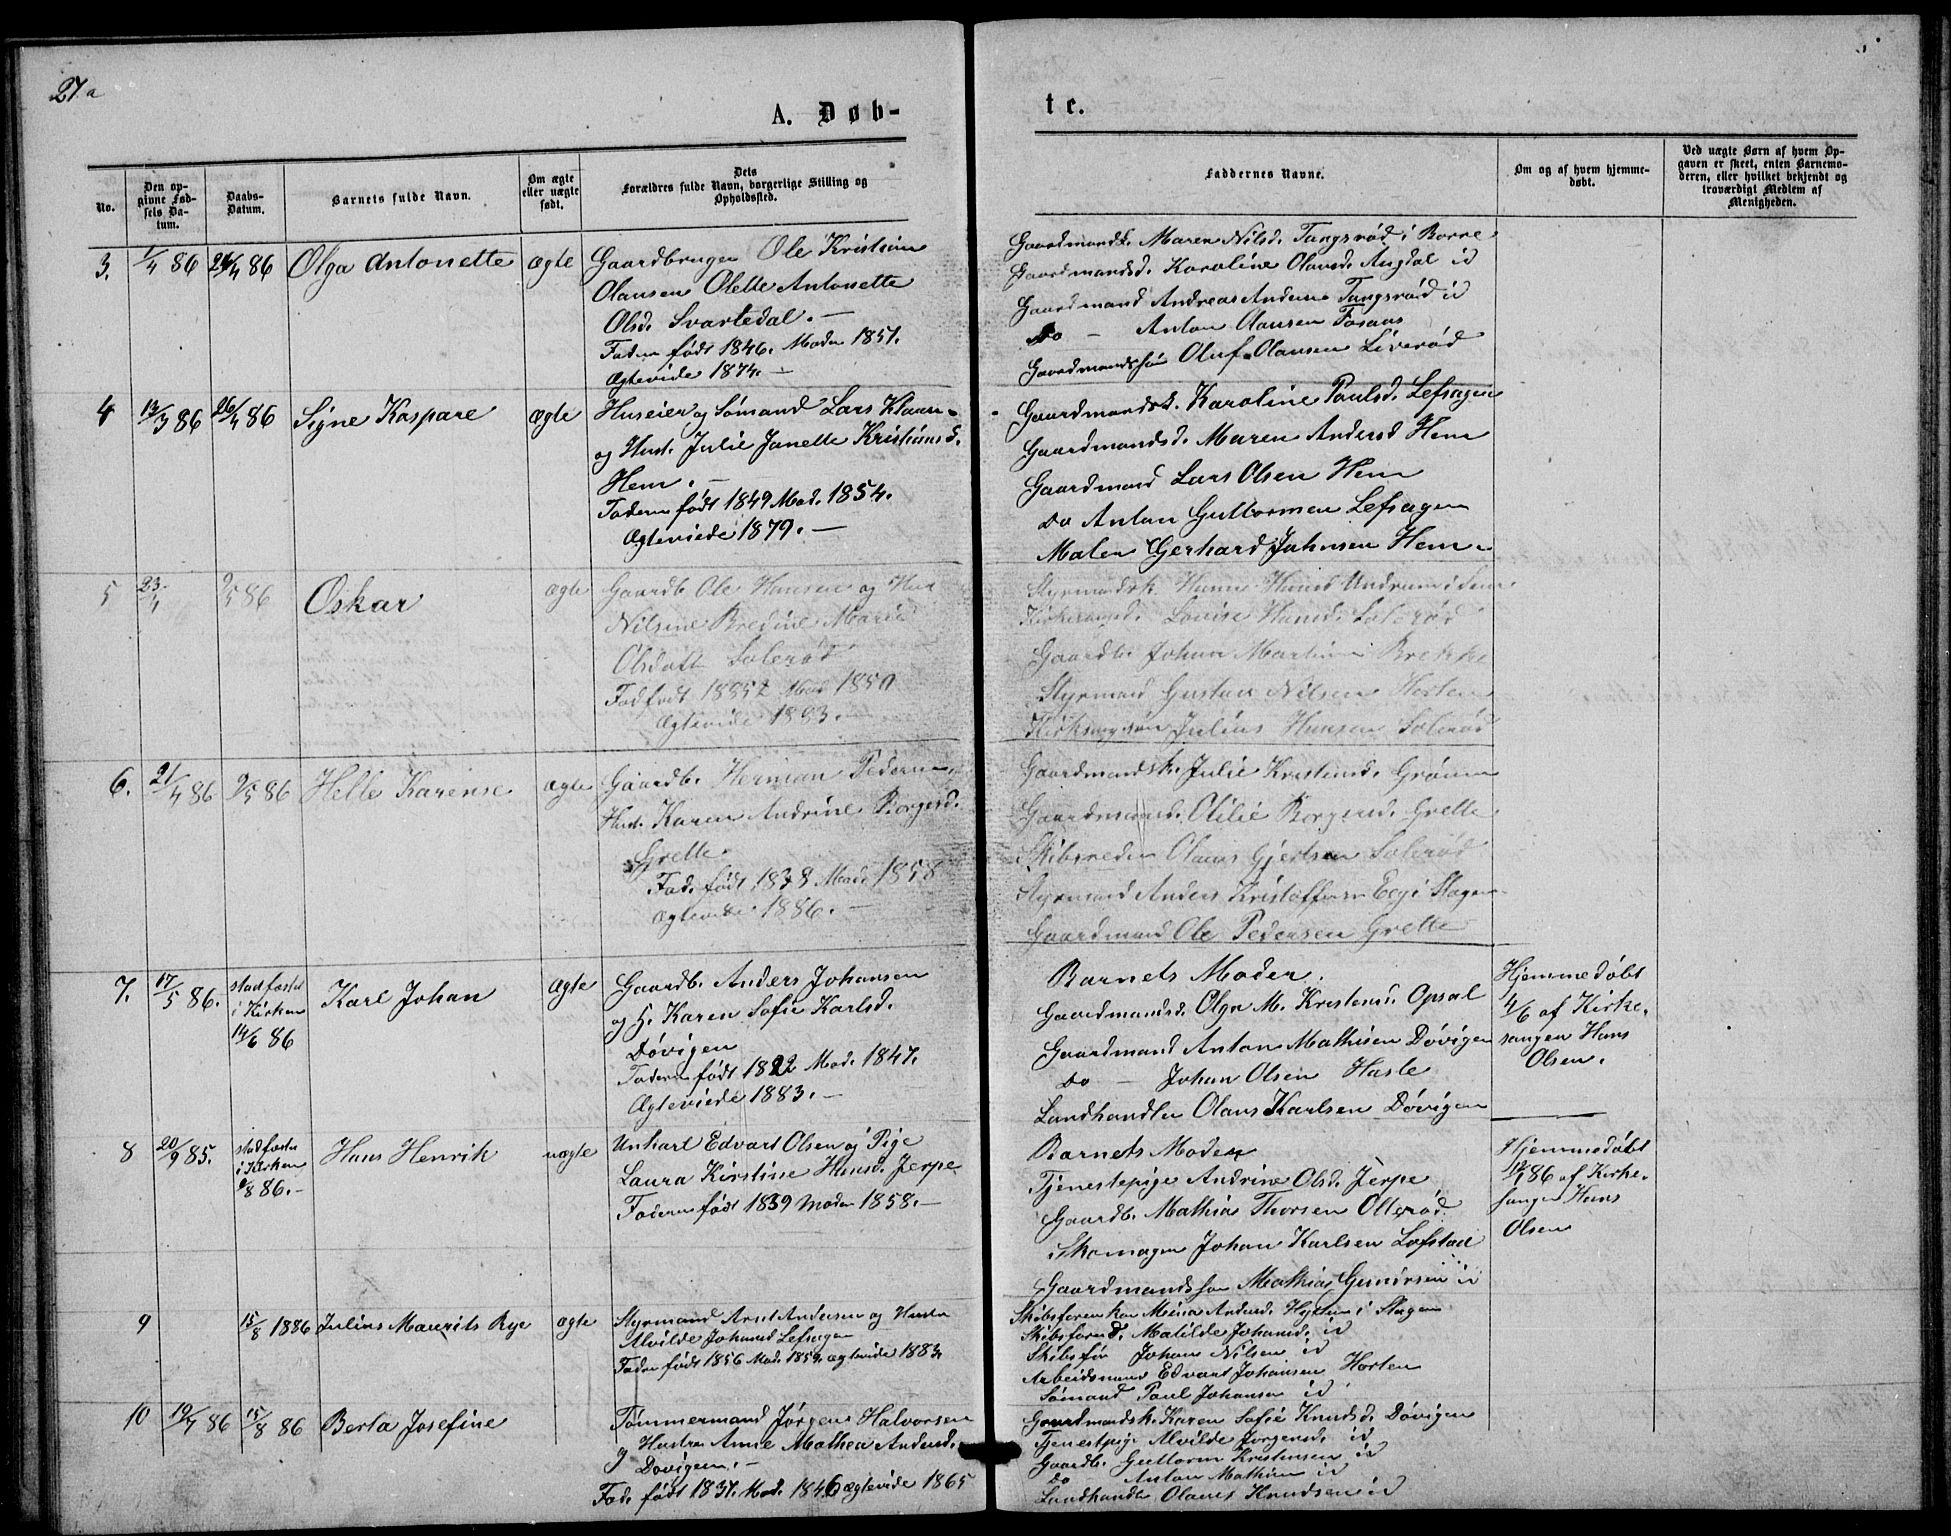 27a
A. Døb-
te.
No.
Den op-
givne Fød-
sels Da-
tum.
Daabs-
Datum.
Barnets fulde Navn.
Om ægte
eller uægte
født.
Dets
Forældres fulde Navn, borgerlige Stilling og
Opholdssted.
Faddernes Navne.
Om og af hvem hjemme-
døbt.
Ved uægte Børn af hvem Op-
gaven er skeet, enten Barnemo-
deren, eller hvilket bekjendt og
troværdigt Medlem af
Menigheden.
3. 1/4 86 24/4 86 Olga Antonette ægte
Gaardbruger Ole Kristian
Olausen Olette Antonette
Olsd. Svartedal. —
Faderen født 1846. Moder 1851.
Ægteviede 1874. —
Gaardmandsk. Maren Nilsd. Tangsrød i Borre
Gaardmandsd. Karoline Olausd. Augdal id
Gaardmand Andreas Anderse Tangsrød id
Do — Anton Olausen Fosaas
Gaardmandssøn Oluf Olausen Liverød
4 13/3 86 26/4 86 Signe Kaspare ægte
Huseier og Sømand Lars Klausen
og Hust. Julie Janette Kristiansd.
Hem. —
Faderen født 1849 Mod. 1854.
Ægteviede 1879. —
Gaardmandsk. Karoline Paulsd. Lefsagen
Gaardmandsd. Maren Andersd Hem
Gaardmand Lars Olsen Hem
Do Anton Guttormsen Lefsagen
Maler Gerhard Johnsen Hem
5 23/4 9/5 86 Oskar ægte
Gaardb Ole Hansen og Hus
Nilsine Bredine Marie
Olsdatt Solerød
Fad født 1852 Mod 1850
Ægteviede 1883. —
Styrmandsk. Hanna Hansd Undrum i Sem
Kirkesangerd. Lovise Hansd. Solerød
Gaardb. Johan Martin Brekke
Styrmand Gustav Nilsen Horten
Kirkesangersøn Julius Hansen Solerød
6. 21/4 86 9/5 86 Helle Karense ægte
Gaardb. Herman Pedersen
Hust. Karen Andrine Borgersd.
Grette
Fad. født 1838 Moder 1858
Ægteviede 1886. —
Gaardmandsk. Julie Kristiansd.
Gaardmandsd. Otilie Borgersd. Grette
Skibsreder Olaus Gjertsen Solerød
Styrmand Anders Kristoffersen Eeg i Slagen
Gaardmand Ole Pedersen Grette
7. 17/5 86. stadfæstet
i Kirken
14/6 86
Karl Johan ægte
Gaardb. Anders Johansen
og H. Karen Sofie Karlsd.
Døvigen
Faderen født 1822 Mod. 1847.
Ægteviede 1883. —
Barnets Moder.
Gaardmandsd. Olga M. Kristensd. Opsal
Gaardmand Anton Mathisen Døvigen
Do — Johan Olsen Hasle
Landhandler Olaus Karlsen Døvigen
Hjemmedøbt
4/6 af Kirke-
sangen Hans
Olsen.
8 20/9 85. stadfæstet
i Kirken
/8 86. —
Hans Henrik uægte
Unkarl Edvart Olsen og Pige
Laura Kirstine Hansd. Jerpe
Faderen født 1839 Moder 1858. —
Barnets Moder
Tjenestepige Andrine Olsd. Jerpe
Gaardb. Mathias Thorsen Ollerød
Skomager Johan Karlsen Lofstad
Gaardmandssøn Mathias Gunirsen id
Hjemmedøbt
86 af Kirke-
sanger Hans
Olsen
9 15/8 1886 Julius Maurits Rye ægte
Styrmand Arnt Andersen og Hustru
Alvilde Johansd Lefsagen
Faderen født 1856 Mod. 1859. ægteviede 1883.
Skibsførerkone Mina Andersd. i Slagen
Skibsførerd. Matilde Johansd. id
Skibsfør Johan Nilsen id
Arbeidsmand Edvart Johansen Horten
Sømand Paul Johansen id
10 19/7 86 15/8 86 Berta Josefine
Tømmermand Jørgen Halvorsen
og Hustru Anne Mathea Andersd.
Døvigen. —
Fad. født 1837. Mod. 1846 ægteviede 1865
Gaardmandsk. Karen Sofie Knudsd. Døvigen
Tjenestpige Alvilde Jørgensd. id
Gaardb. Guttorm Kristensen id
Do — Anton Mathisen id
Landhandler Olaves Knudsen id